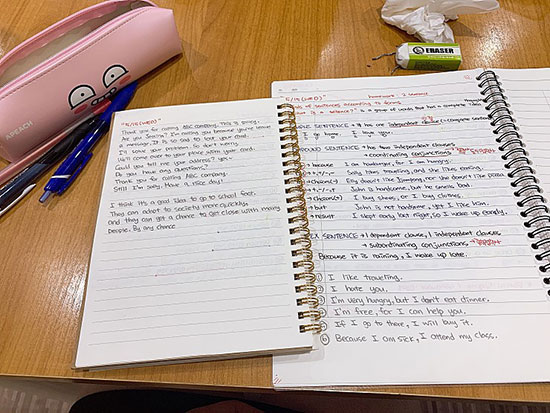 APEACH
ERASER
"5/15 (WED)"
Thank you for calling ABC company. This is
Are you I'm calling because you're leave
a message. It is so sad to lost your card.
I'll solve your problem. So don't worry.
We'll come over to your place with your card.
Could you tell me your address? yes~
Do you have any questions?
Thank you for calling ABC company.
Still I'm sorry. Have a nice day!
I think it's a good idea to go to school
They can adapt to society more quickly,
and they can get a chance to get close with many
people. By any chance
"5/15 (WED)"
homework 2 sentence
of sentences according to forms
is a sentence? a group of words that has a complete
SENTENCE has an independent clause
I go home I love you.
SENTENCE has two independent clauses
+ coordinating conjunctions
because I am hungry.
Sally likes traveling, and she likes eating.
Elly doesn't like nor she doesn't like
John is handsome, but he smells bad.
I buy shoes, or I buy clothes.
but John is not handsome, yet I like him.
result I slept early last night, so I wake up early.
SENTENCE 1 dependent clause, 1 independent clauses
+ subordinating conjunctions
Because it is raining, I wake up late.
① I like traveling.
② I hate you.
③ I'm very hungry, but I don't eat dinner.
④ I'm free, for I can help you.
⑤ If I go to there, I will buy it.
⑥ Because I am sick, I attend my class.